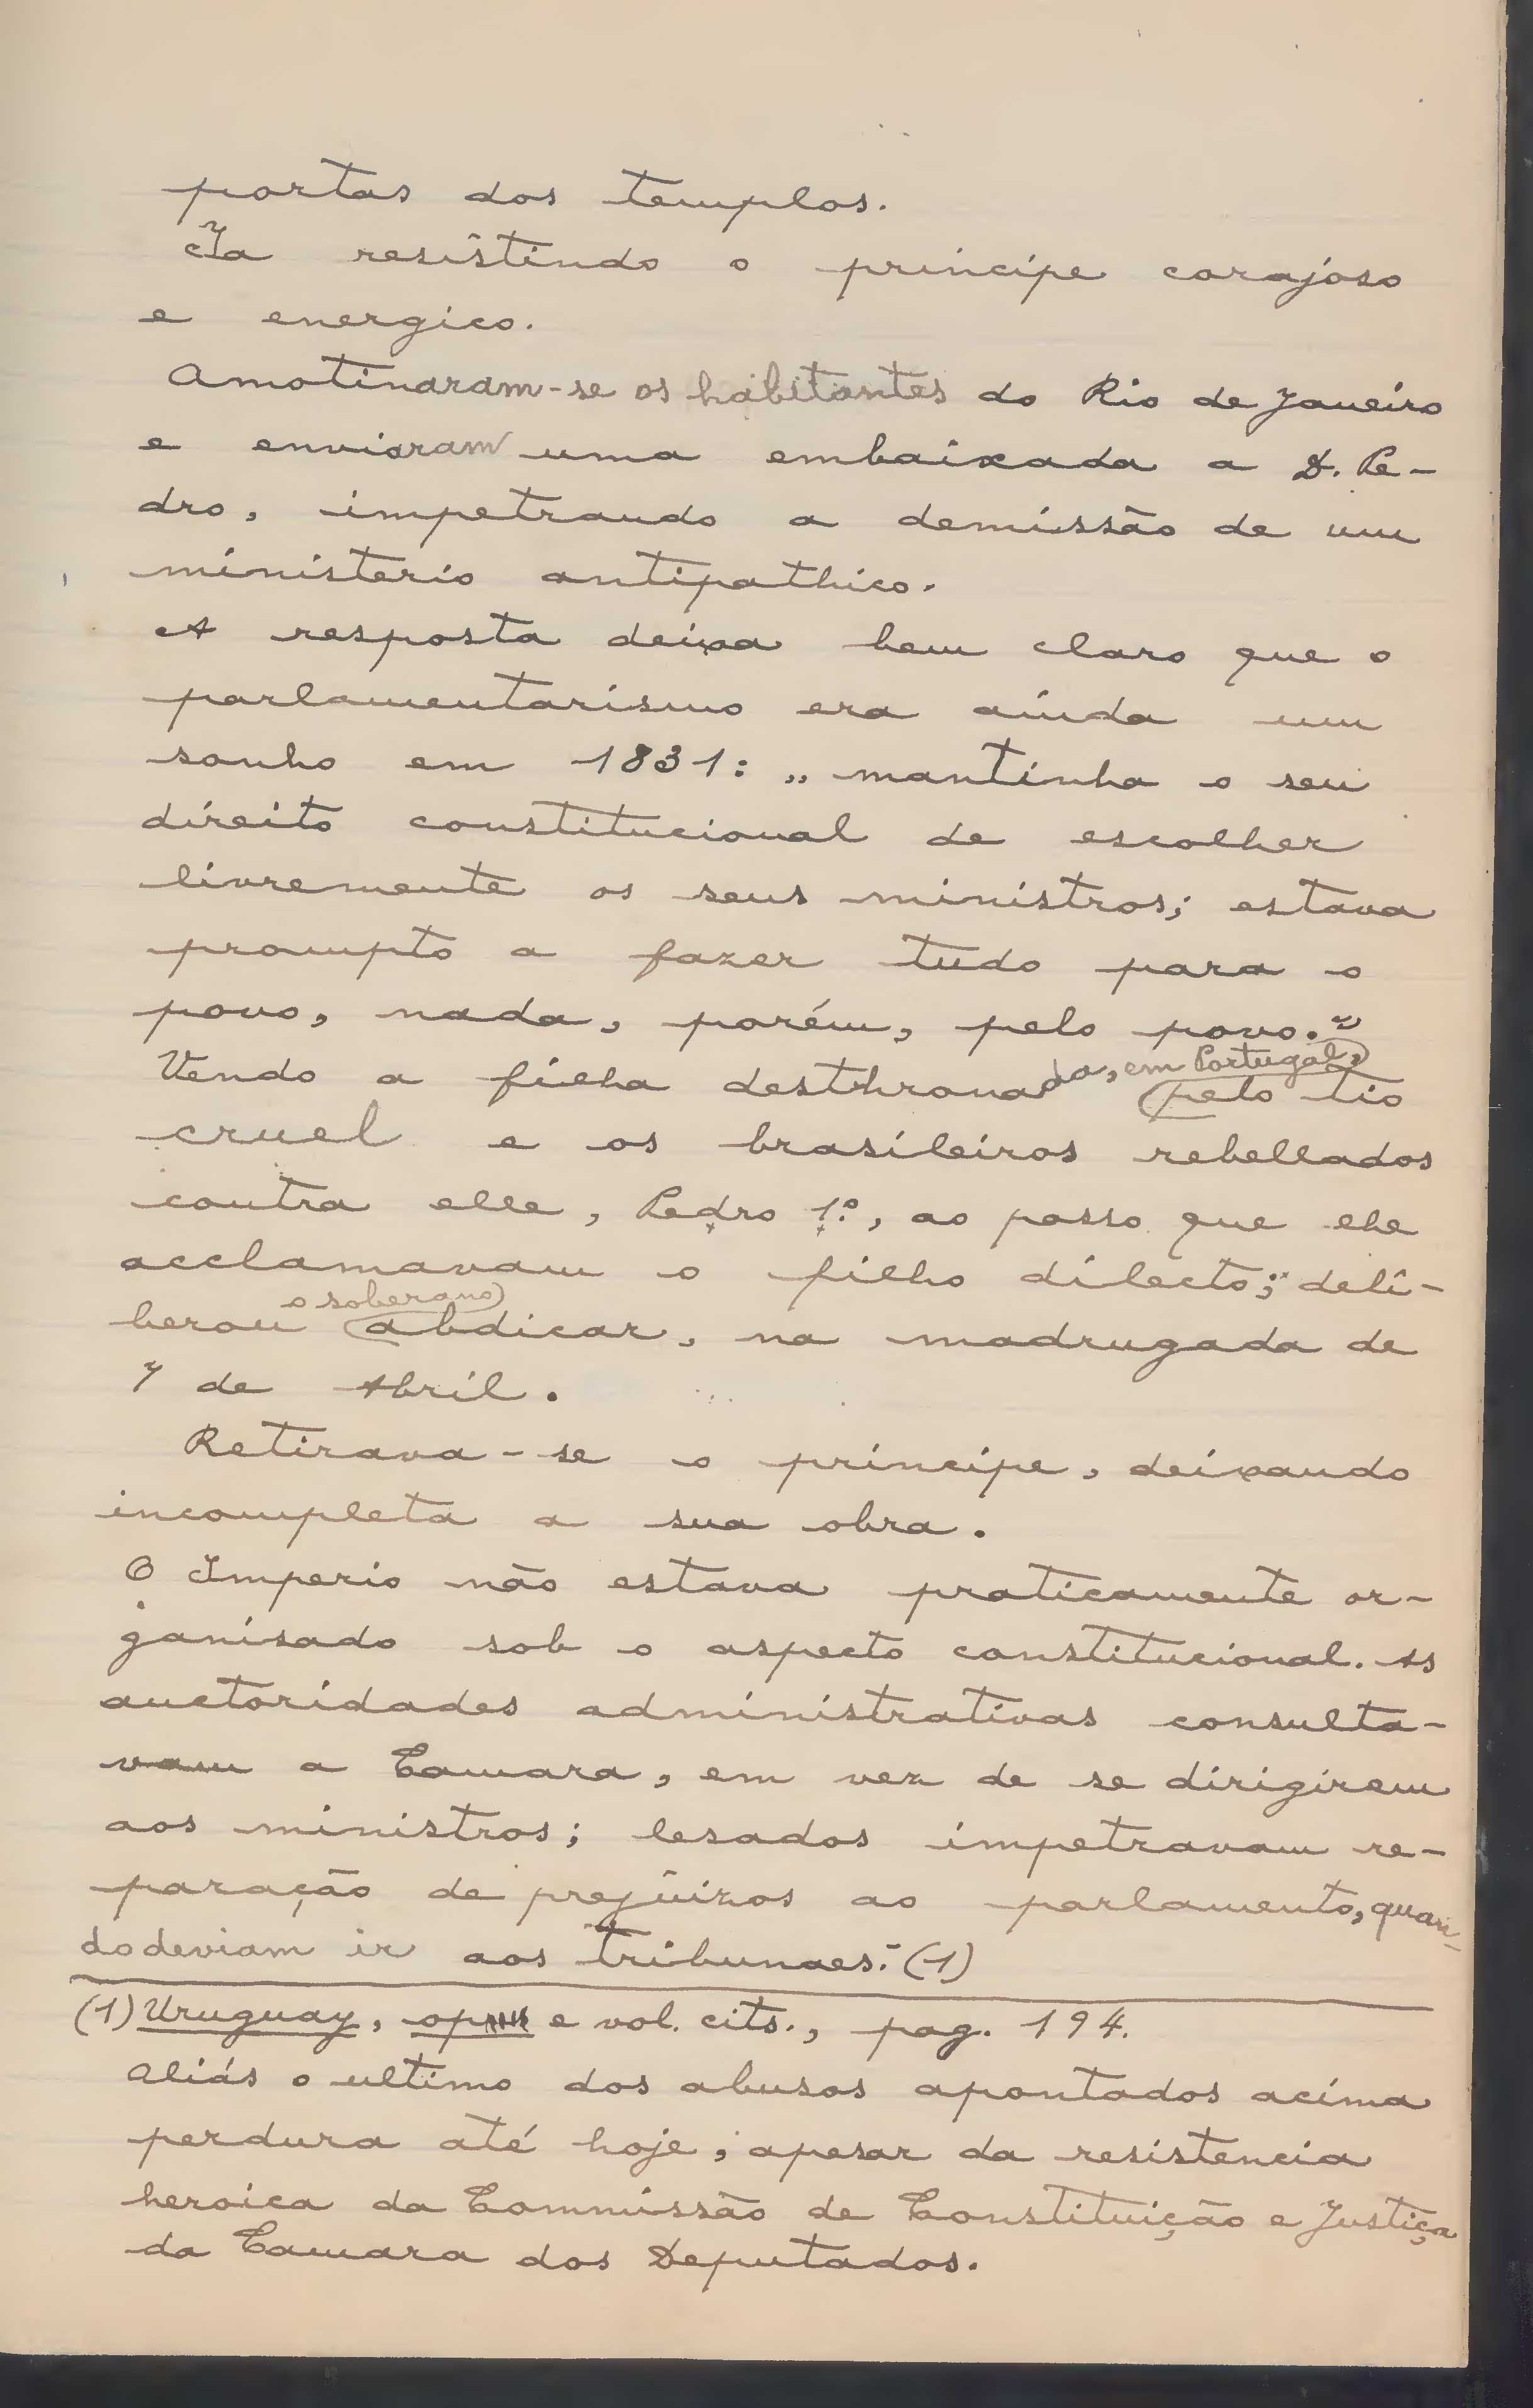 portas dos templos.
Ia resistindo o principe corajoso
e energico.
Amotinaram-se os habitantes do Rio de Janeiro
e enviaram uma embaixada a D. Pe-
dro, impetrando a demissão de um
ministerio antipathico.
A resposta deixa bem claro que o
parlamentarismo era ainda um
sonho em 1831: „mantinha o seu
direito constitucional de escolher
livremente os seus ministros; estava
prompto a fazer tudo para o
povo, nada, porém, pelo povo.”
Vendo a filha desthronada, em Portugal, pelo tio
cruel e os brasileiros rebellados
contra elle, Pedro 1º, ao passo que lhe
acclamavam o filho dilecto; deli-
berou o soberano abdicar, na madrugada de
7 de Abril.
Retirava-se o principe, deixando
incompleta a sua obra.
O Imperio não estava praticamente or-
ganisado sob o aspecto constitucional. As
auctoridades administrativas consulta-
vam a Camara, em vez de se dirigirem
aos ministros; lesados impetravam re-
paração de prejuizos ao parlamento, quan-
do deviam ir aos tribunaes. (1)
(1) Uruguay, op. e vol. cits., pag. 194.
Aliás o ultimo dos abusos apontados acima
perdura até hoje, apesar da resistencia
heroica da Commissão de Constituição e Justiça
da Camara dos Deputados.